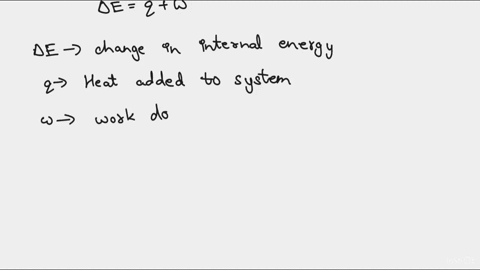 ΔE = q + w
ΔE → change in internal energy
q → Heat added to system
w → work do